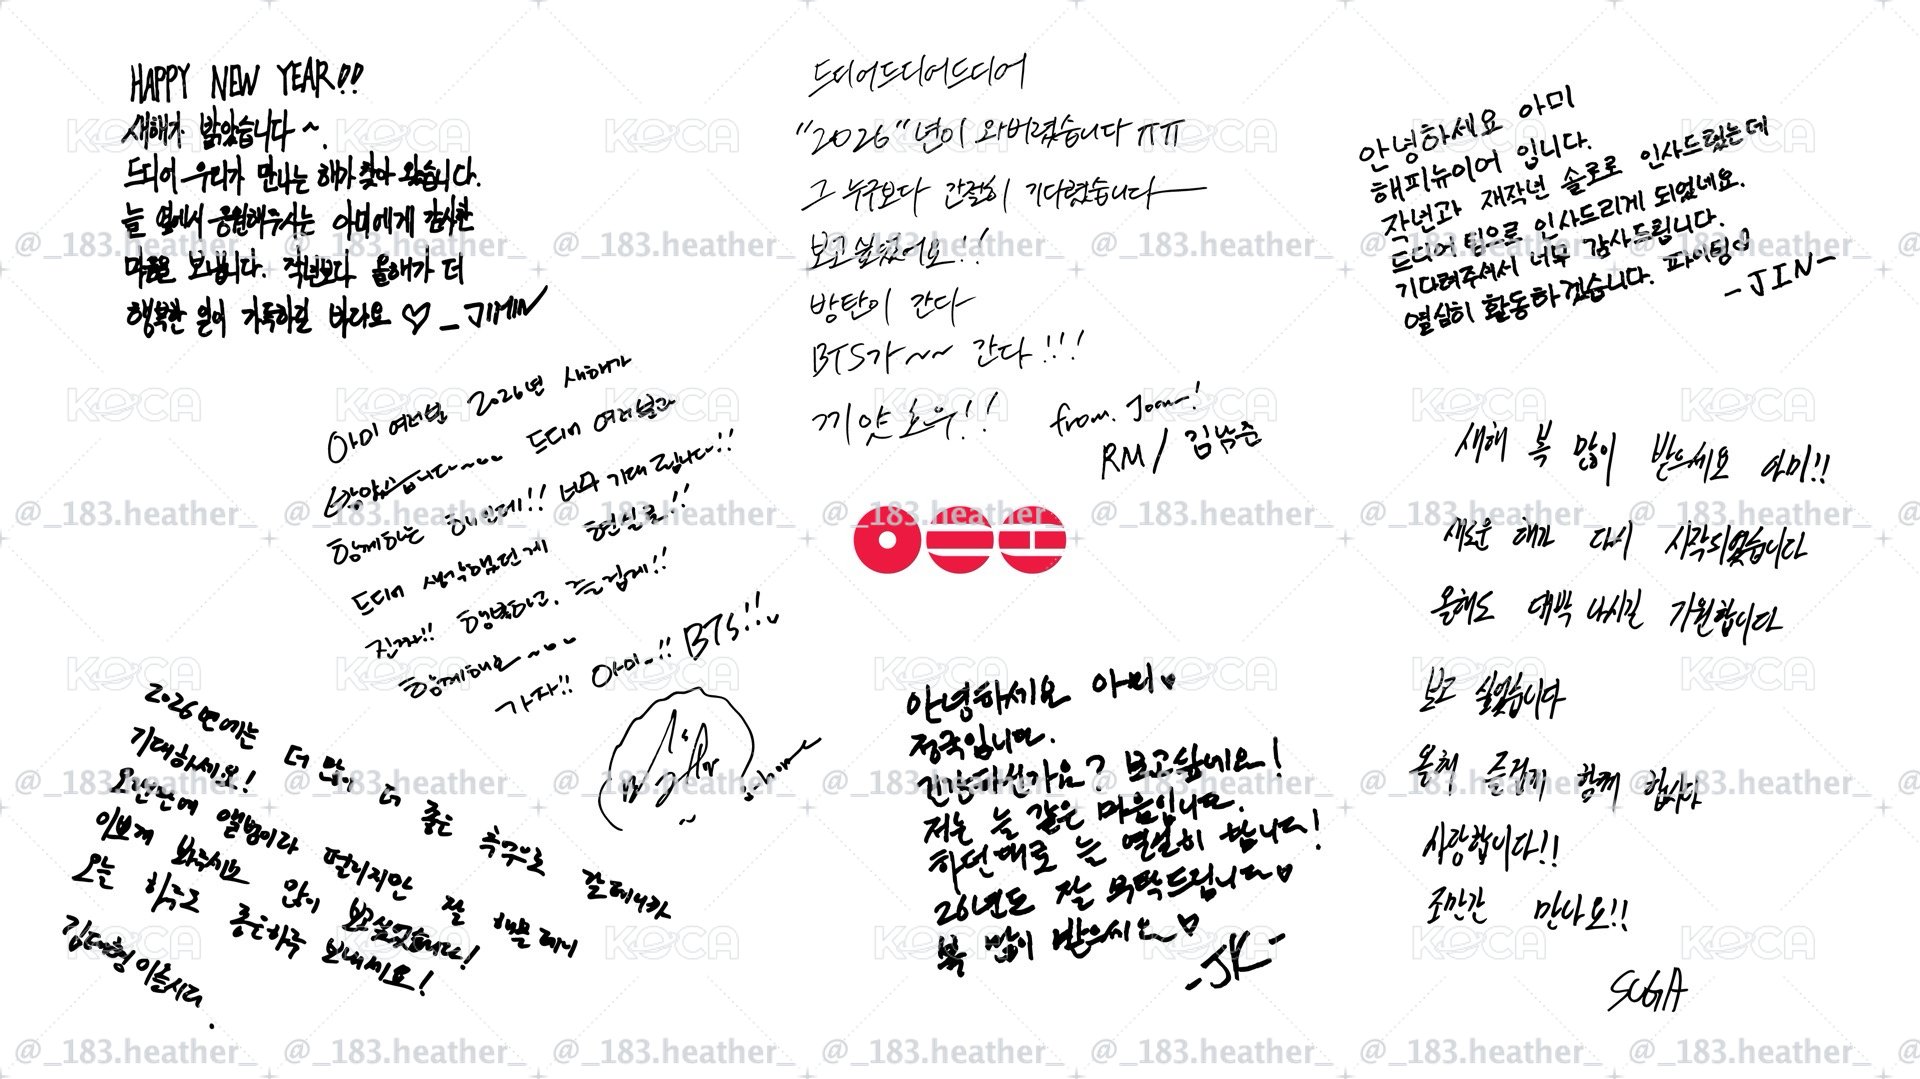 HAPPY NEW YEAR!!
새해가 밝았습니다~.
드디어 우리가 만나는 해가 찾아 왔습니다.
늘 옆에서 응원해주시는 아미에게 감사한
마음을 보냅니다. 작년보다 올해가 더
행복한 일이 가득하길 바라요 ♡ - JIMIN
드디어드디어드디어
"2026"년이 와버렸습니다 ㅠㅠ
그 누구보다 간절히 기다렸습니다
보고싶었어요!!
방탄이 간다
BTS가~~ 간다!!!
끼얏호우!!
from. Joon-!
RM / 김남준
안녕하세요 아미
해피뉴이어 입니다.
작년과 재작년 솔로로 인사드렸는데
드디어 팀으로 인사드리게 되었네요.
기다려주셔서 너무 감사드립니다.
열심히 활동하겠습니다. 파이팅♡
- JIN -
아미 여러분 2026년 새해가
밝았습니다~~~ 드디어 여러분과
함께하는 해인데!! 너무 기대됩니다!!
드디어 생각했던게 현실로!!
진짜!! 행복하고, 즐겁게!!
함께해요~~~
가자!! 아미~!! BTS!!
j-hope
새해 복 많이 받으세요 아미!!
새로운 해가 다시 시작되었습니다
올해도 대박 나시길 기원합니다
보고 싶었습니다
올해 즐겁게 함께 합시다
사랑합니다!!
조만간 만나요!!
SUGA
2026년에는 더 많이 더 좋은 추구로 갈테니까
기대하세요!
오랜만에 앨범이라 떨리지만 잘 해볼테니
이쁘게 봐주시요 많이 보고싶었습니다!
오늘 하루도 좋은하루 보내세요!
김태형 이올시다.
안녕하세요 아미♥
정국입니다.
건강하신가요? 보고싶네요!
저는 늘 같은 마음입니다.
하던대로 늘 열심히 합니다!
26년도 잘 부탁드립니다♡
복 많이 받으시요~♡
- JK -
KOCA
@_183.heather_